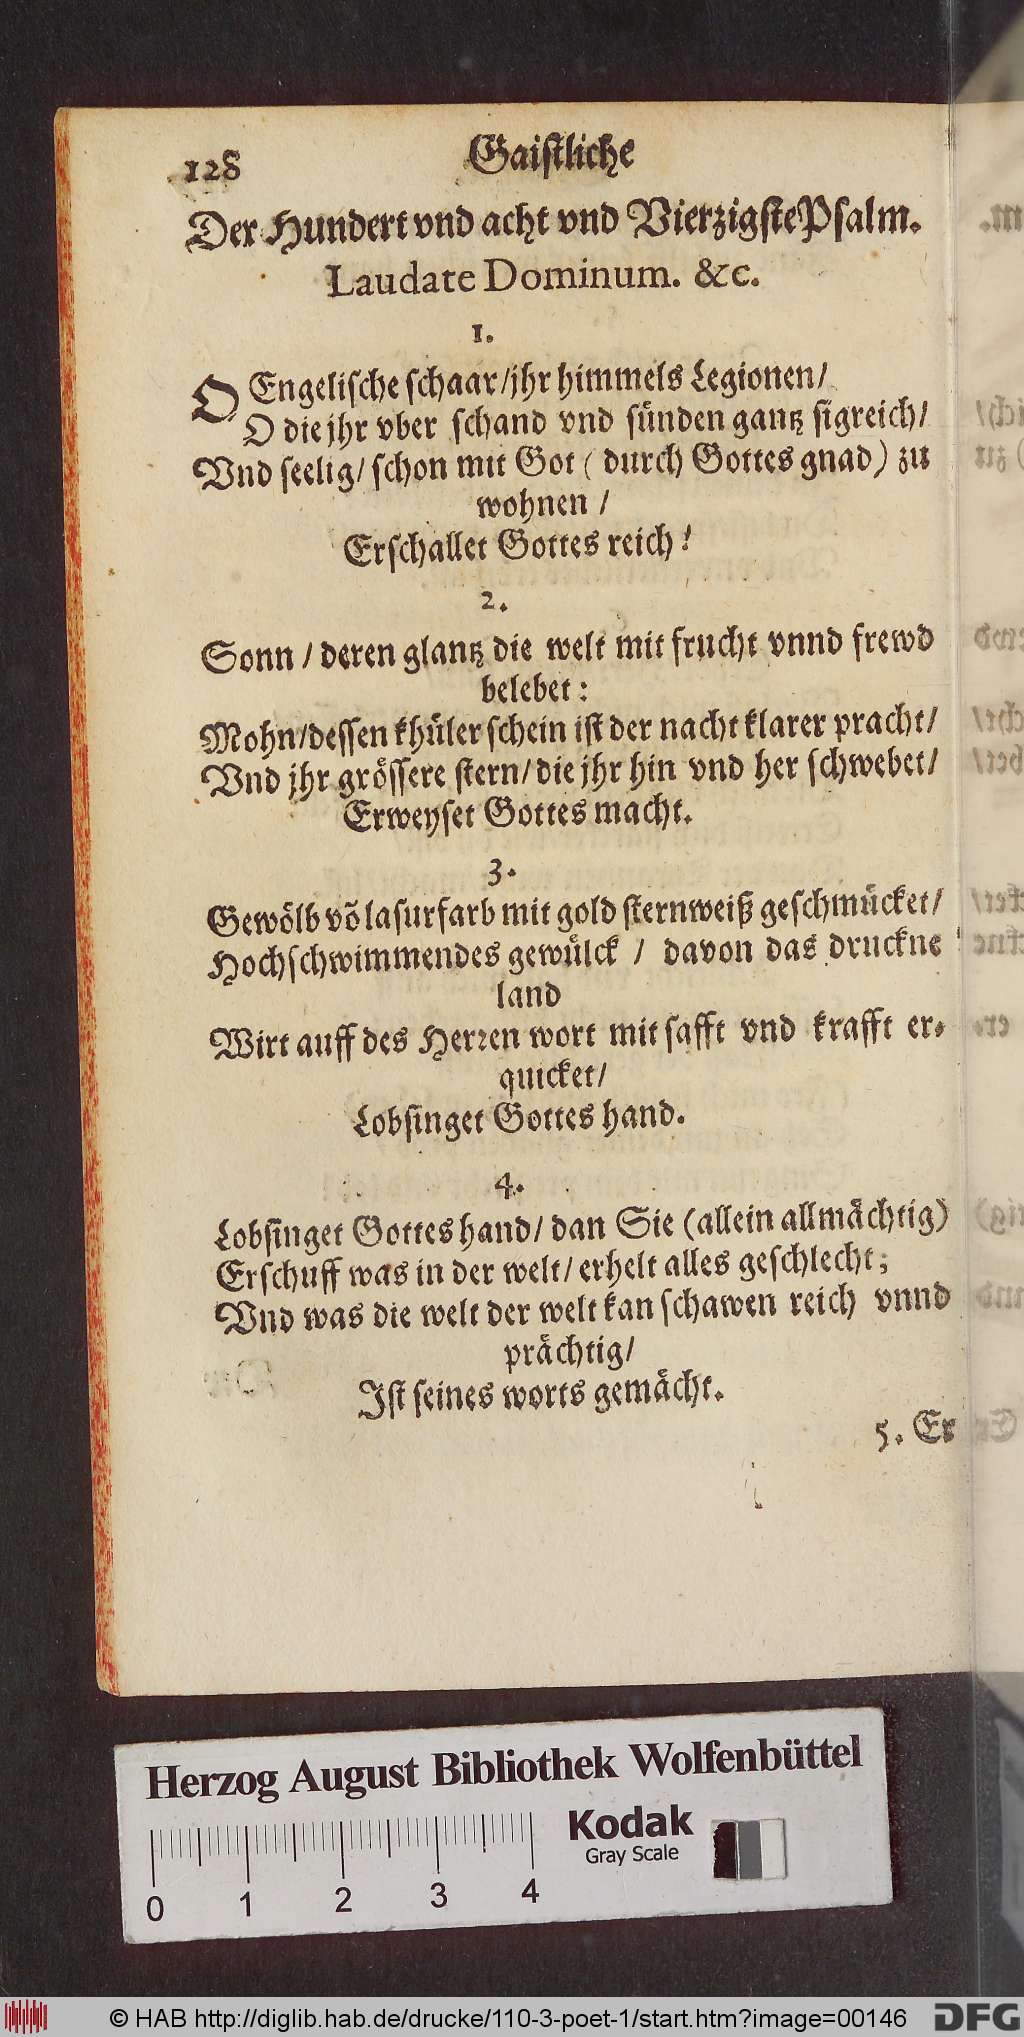 128
Gaistliche
Der Hundert vnd acht vnd Vierzigste Psalm.
Laudate Dominum. &c.
1.
O Engelische schaar/jhr himmels Legionen/
O die jhr vber schand vnd sünden gantz sigreich/
Vnd seelig/ schon mit Got ( durch Gottes gnad) zu
wohnen /
Erschallet Gottes reich!
2.
Sonn / deren glantz die welt mit frucht vnnd frewd
belebet :
Mohn/dessen khüler schein ist der nacht klarer pracht/
Vnd jhr grössere stern/ die jhr hin vnd her schwebet/
Erweyset Gottes macht.
3.
Gewölb võ lasurfarb mit gold sternweiß geschmücket/
Hochschwimmendes gewülck / davon das druckne
land
Wirt auff des Herren wort mit safft vnd krafft er-
quicket/
Lobsinget Gottes hand.
4.
Lobsinget Gottes hand/ dan Sie (allein allmächtig)
Erschuff was in der welt/ erhelt alles geschlecht;
Vnd was die welt der welt kan schawen reich vnnd
prächtig/
Ist seines worts gemächt.
5. Er
Herzog August Bibliothek Wolfenbüttel
Kodak
Gray Scale
0 1 2 3 4
© HAB http://diglib.hab.de/drucke/110-3-poet-1/start.htm?image=00146
DFG